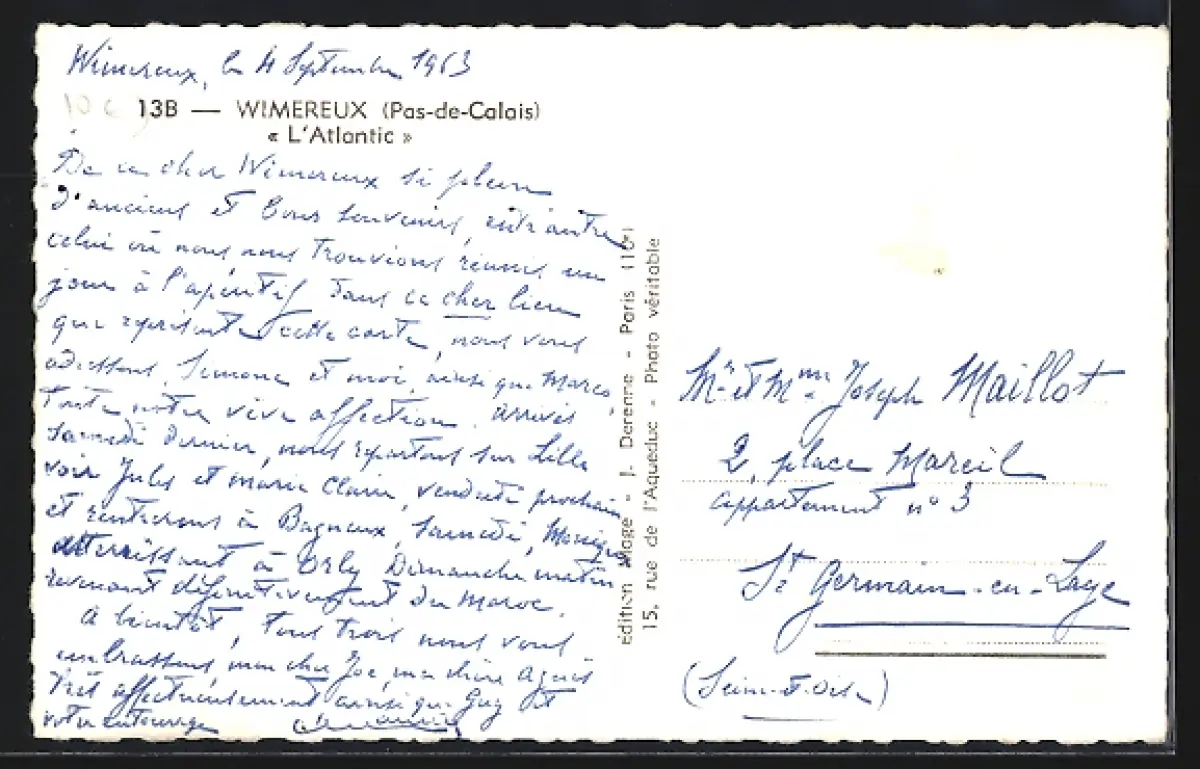 Wimereux, le 4 Septembre 1963
13B — WIMEREUX (Pas-de-Calais)
« L'Atlantic »
De ce cher Wimereux si plein
d'anciens et bons souvenirs, entr'autre
celui où nous nous trouvions réunis un
jour à l'apéritif dans ce cher lieu
que représente cette carte, nous vous
adressons, Simone et moi, ainsi que Marco,
toute notre vive affection. Arrivés
samedi dernier, nous repartons sur Lille
voir Jules et Marie Claire, vendredi prochain
et rentrerons à Bagneux, samedi,
atterrissant à Orly Dimanche matin
revenant définitivement du Maroc.
A bientôt, tous trois nous vous
embrassons, mon cher Joe, ma chère Agnès
très affectueusement ainsi que Guy et
votre entourage
Édition Mage - J. Derenne - Paris (16e)
15, rue de l'Aqueduc - Photo véritable
Mr et Mme Joseph Maillot
2, place Mareil
appartement n° 3
St Germain-en-Laye
(Seine-et-Oise)